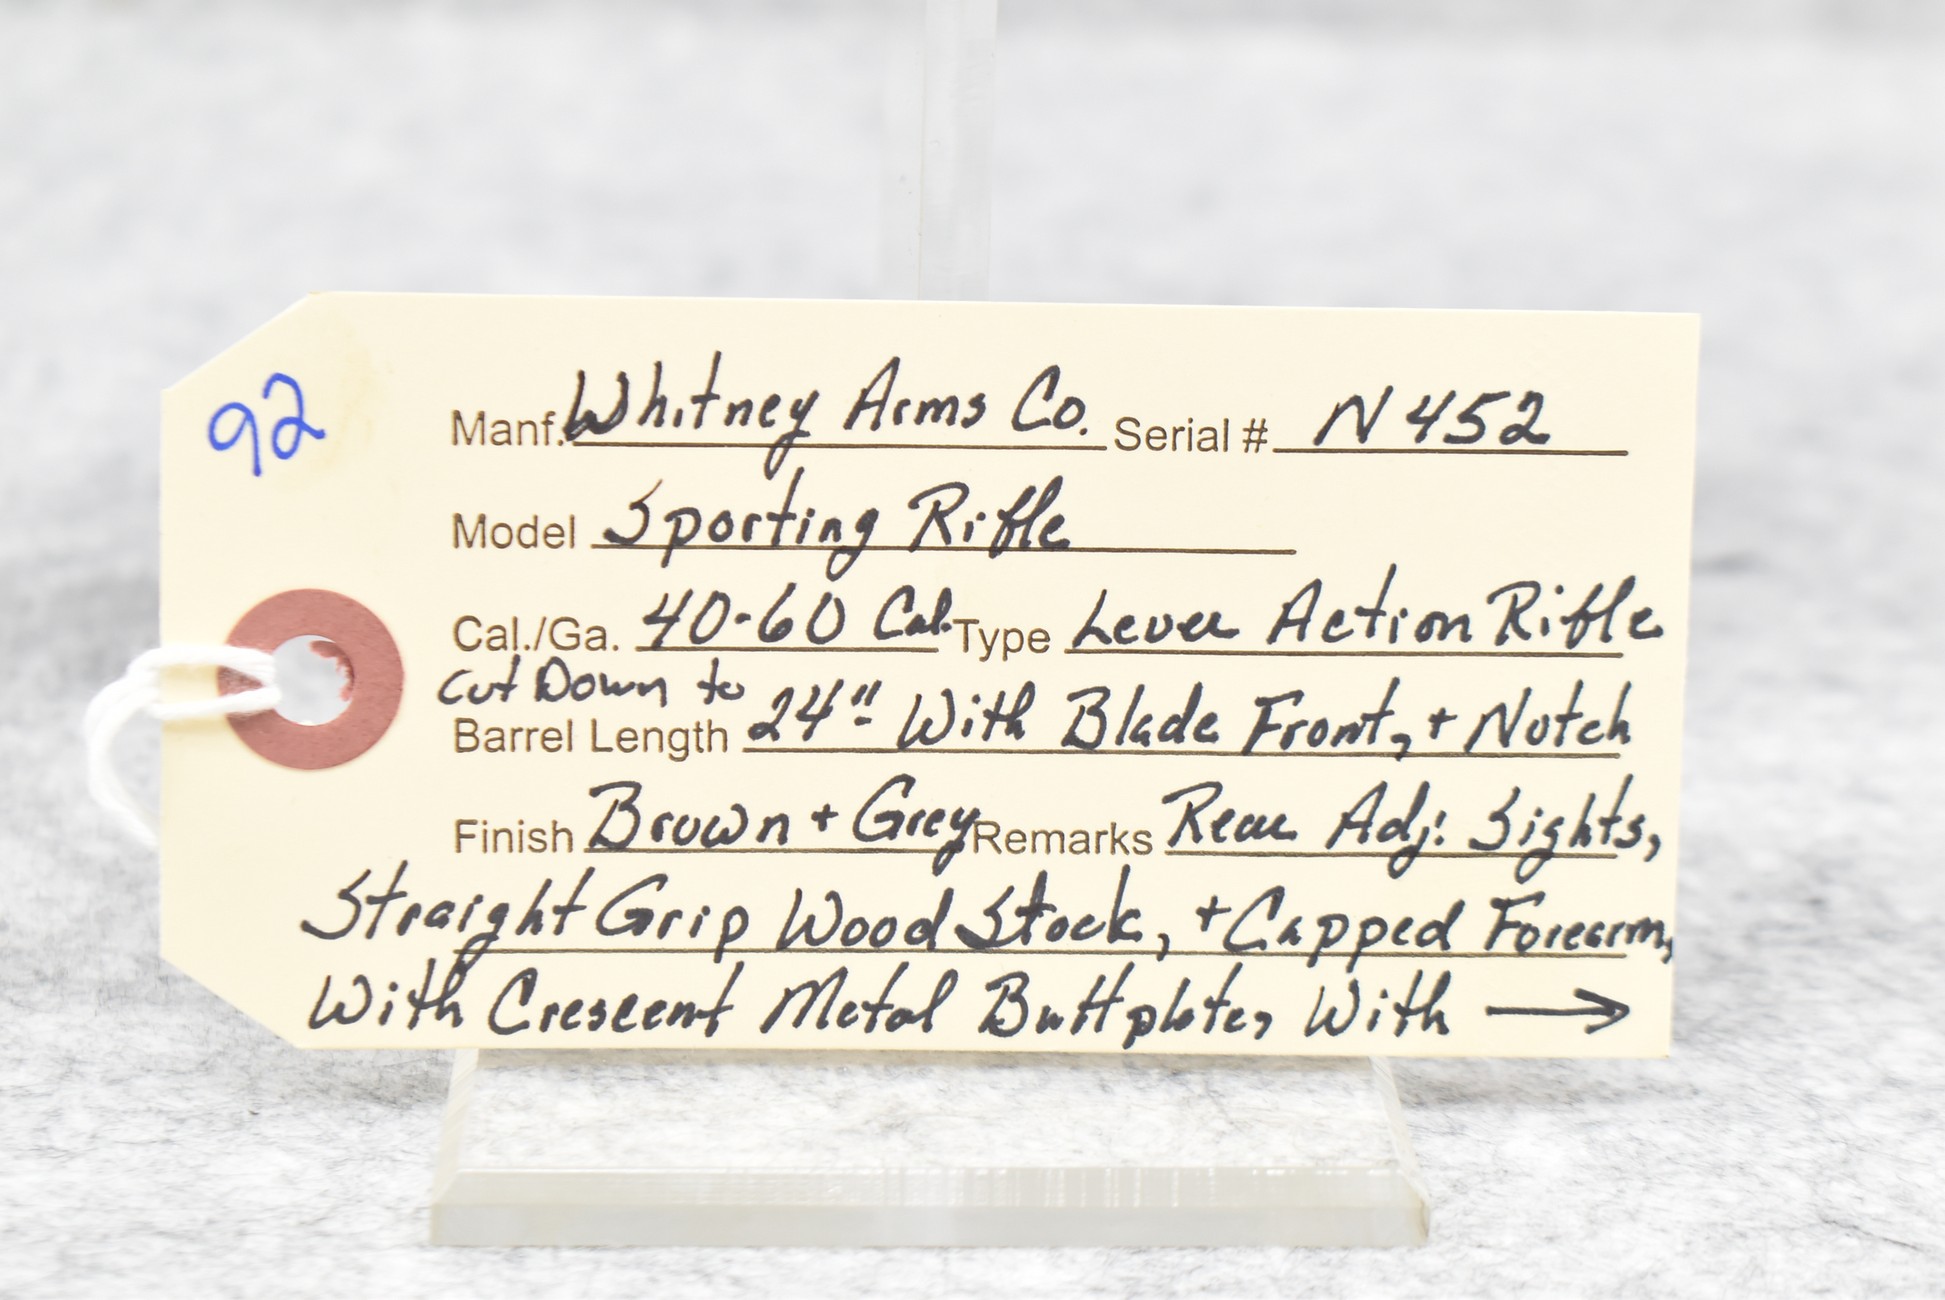 92
Manf. Whitney Arms Co. Serial # N452
Model Sporting Rifle
Cal./Ga. 40-60 Cal. Type Lever Action Rifle
Cut Down to
Barrel Length 24" With Blade Front, + Notch
Finish Brown + Grey Remarks Rear Adj. Sights,
Straight Grip Wood Stock, + Capped Forearm,
With Crescent Metal Buttplate, With →